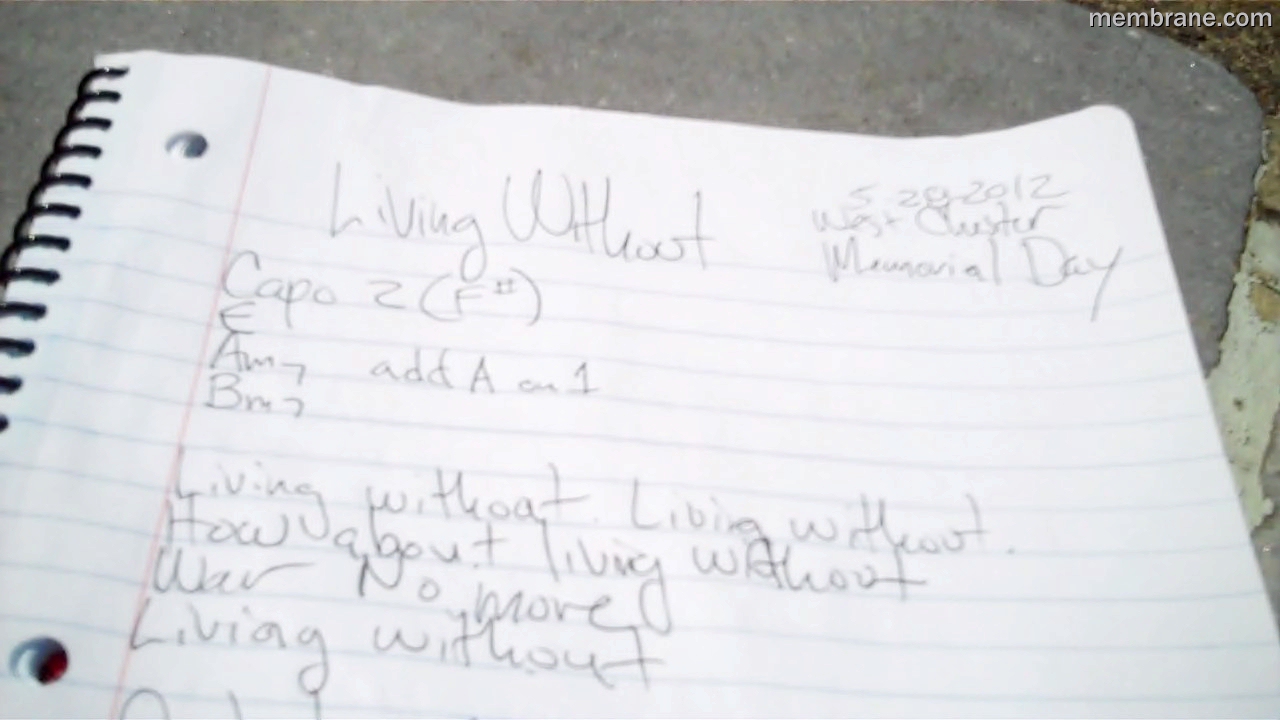 membrane.com
Living Without
5-28-2012
West Chester
Memorial Day
Capo 2 (F#)
E
Am7 add A on 1
Bm7
Living without. Living without.
How about living without
War No more
Living without